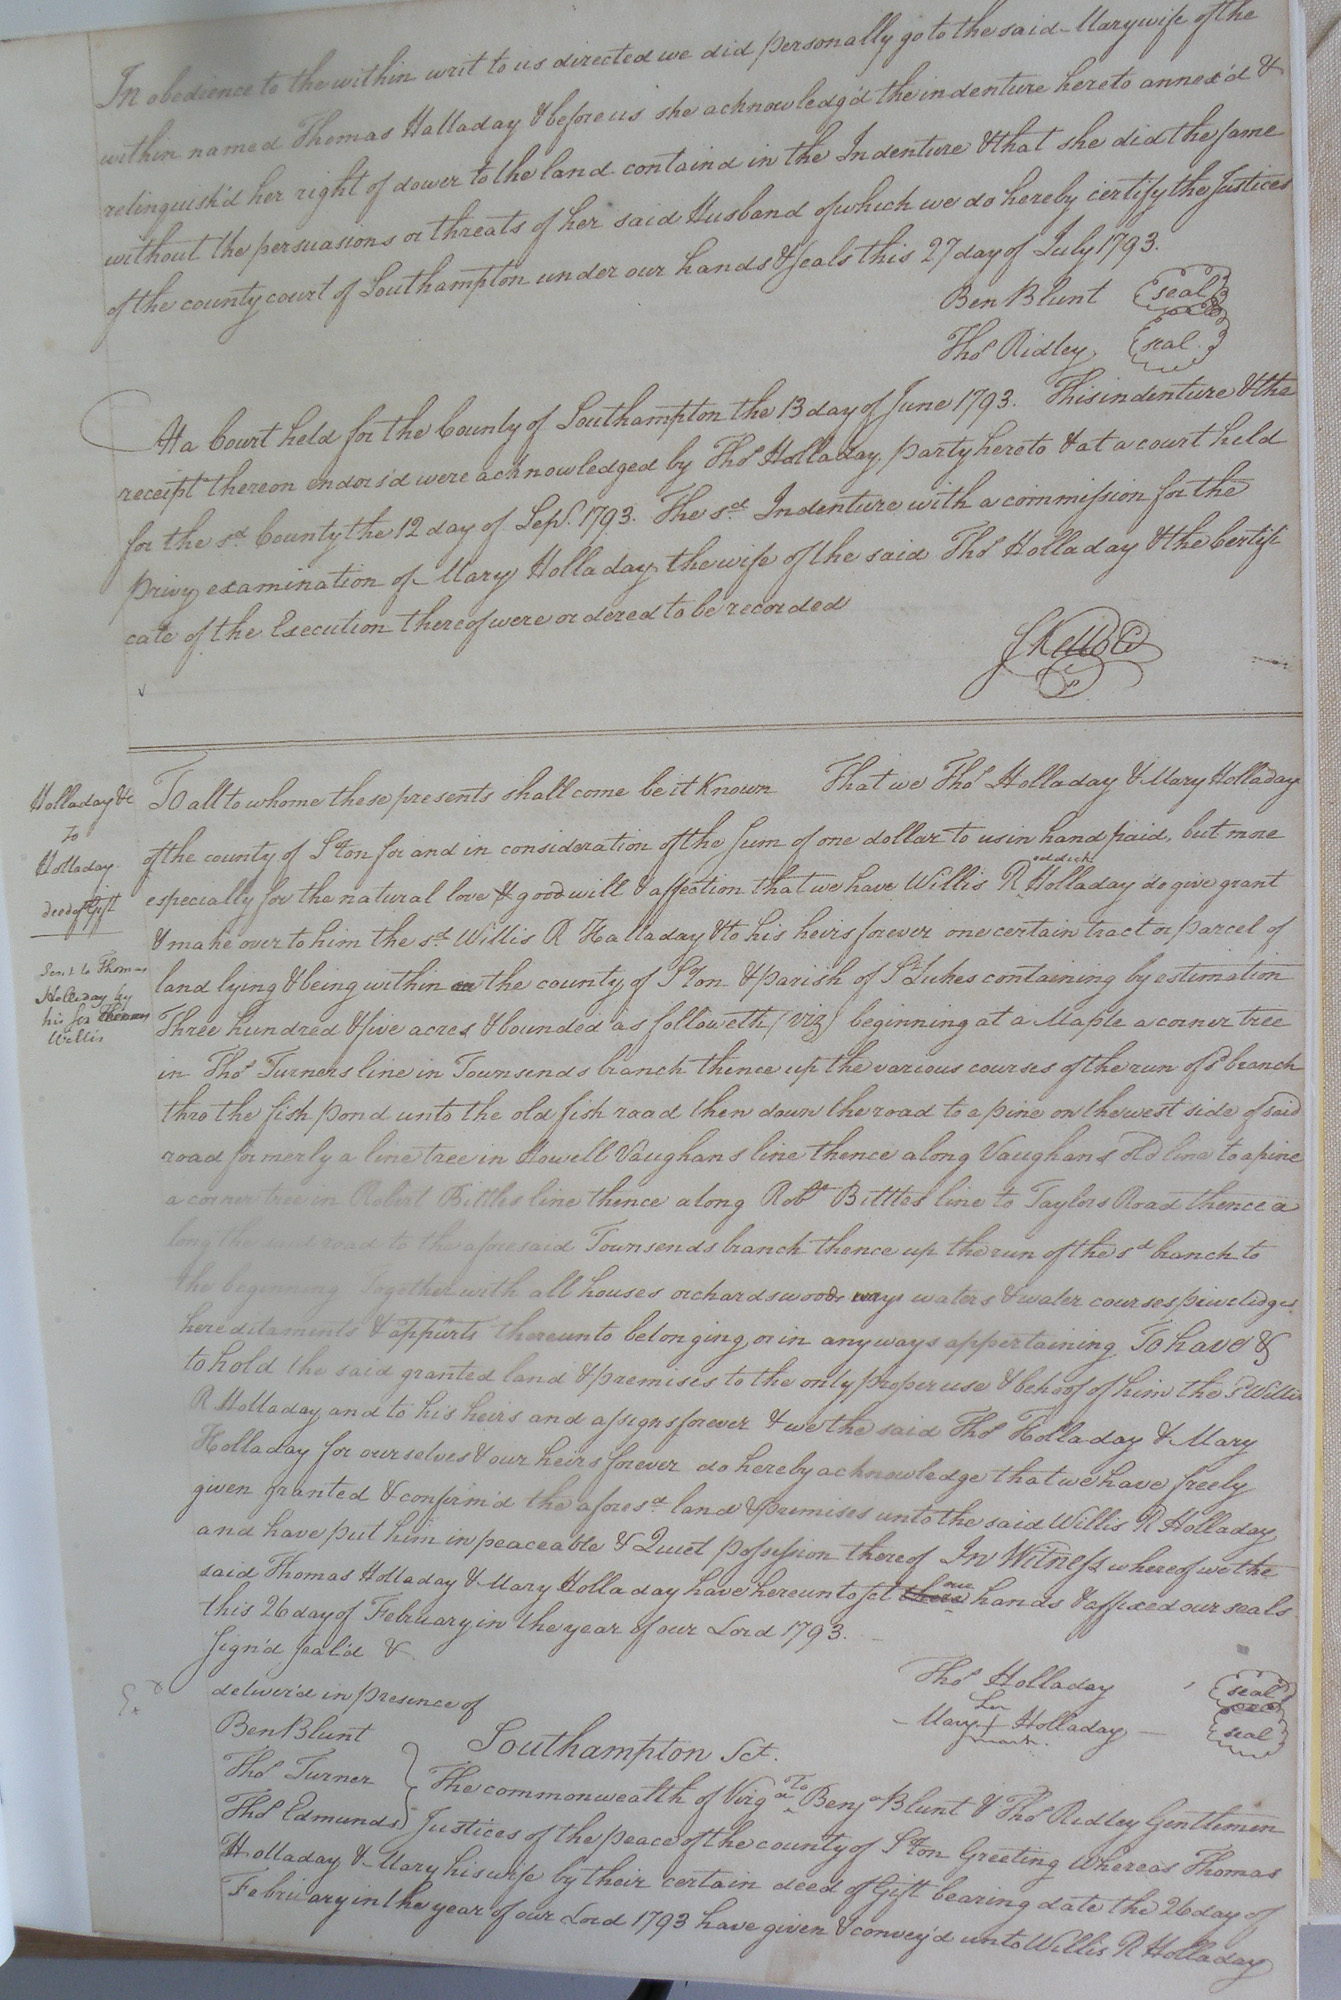 In obedience to the within writ to us directed we did personally go to the said Mary wife of the
within named Thomas Halladay & before us she acknowledg'd the indenture hereto annex'd &
relinguish'd her right of dower to the land containd in the Indenture & that she did the same
without the persuasions or threats of her said Husband of which we do hereby certify the Justices
of the county court of Southampton under our hands & seals this 27 day of July 1793.
Ben Blunt seal
Thos Ridley seal
At a Court held for the County of Southampton the 13 day of June 1793. This indenture & the
receipt thereon endors'd were acknowledged by Thos Holladay party hereto & at a court held
for the sd. County the 12 day of Sept. 1793. The sd. Indenture with a commission for the
privy examination of Mary Holladay the wife of the said Thos Holladay & the Certifi
cate of the Execution thereof were ordered to be recorded
Holladay &c
To
Holladay
deed of Gift
Sent to Thomas
Holladay by
his son Thomas
Willis
To all to whome these presents shall come be it Known That we Thos Holladay & Mary Holladay
of the county of Ston for and in consideration of the sum of one dollar to us in hand paid, but more
especially for the natural love & good will & affection that we have Willis Reddick Holladay do give grant
& make over to him the sd. Willis R Halladay & to his heirs forever one certain tract or parcel of
land lying & being within the county of Ston & parish of St Lukes containing by estimation
Three hundred & five acres & bounded as followeth (viz) beginning at a Maple a corner tree
in Thos Turners line in Townsends branch thence up the various courses of the run of sd branch
thro the fish pond unto the old fish road then down the road to a pine on the west side of said
road formerly a line tree in Howell Vaughans line thence along Vaughans old line to a pine
a corner tree in Robert Bittles line thence along Robt Bittles line to Taylors Road thence a
long the said road to the aforesaid Townsends branch thence up the run of the sd branch to
the beginning Together with all houses orchards woods ways waters & water courses priveledges
hereditaments & appurts thereunto belonging or in any ways appertaining To have &
to hold the said granted land & premises to the only proper use & behoof of him the sd Willis
R Holladay and to his heirs and assigns forever & we the said Thos Holladay & Mary
Holladay for ourselves & our heirs forever do hereby acknowledge that we have freely
given granted & confirm'd the aforesd land & premises unto the said Willis R Holladay
and have put him in peaceable & Quiet possession thereof In Witness whereof we the
said Thomas Holladay & Mary Holladay have hereunto set there our hands & affixed our seals
this 26 day of February in the year of our Lord 1793.
Sign'd seal'd &
deliver'd in presence of
Ben Blunt
Thos Turner
Thos Edmunds
Thos Holladay seal
her
Mary + Holladay seal
mark
Southampton Sct.
The commonwealth of Virga To Benja Blunt & Thos Ridley Gentlemen
Justices of the peace of the county of Ston Greeting Whereas Thomas
Holladay & Mary his wife by their certain deed of Gift bearing date the 26 day of
February in the year of our Lord 1793 have given & convey'd unto Willis R Holladay